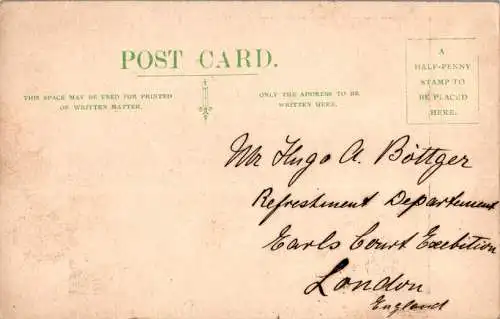 POST CARD.
THIS SPACE MAY BE USED FOR PRINTED
OF WRITTEN MATTER.
ONLY THE ADDRESS TO BE
WRITTEN HERE.
A
HALF-PENNY
STAMP TO
BE PLACED
HERE.
Mr Hugo A. Böttger
Refreshment Departement
Earls Court Exebition
London
England